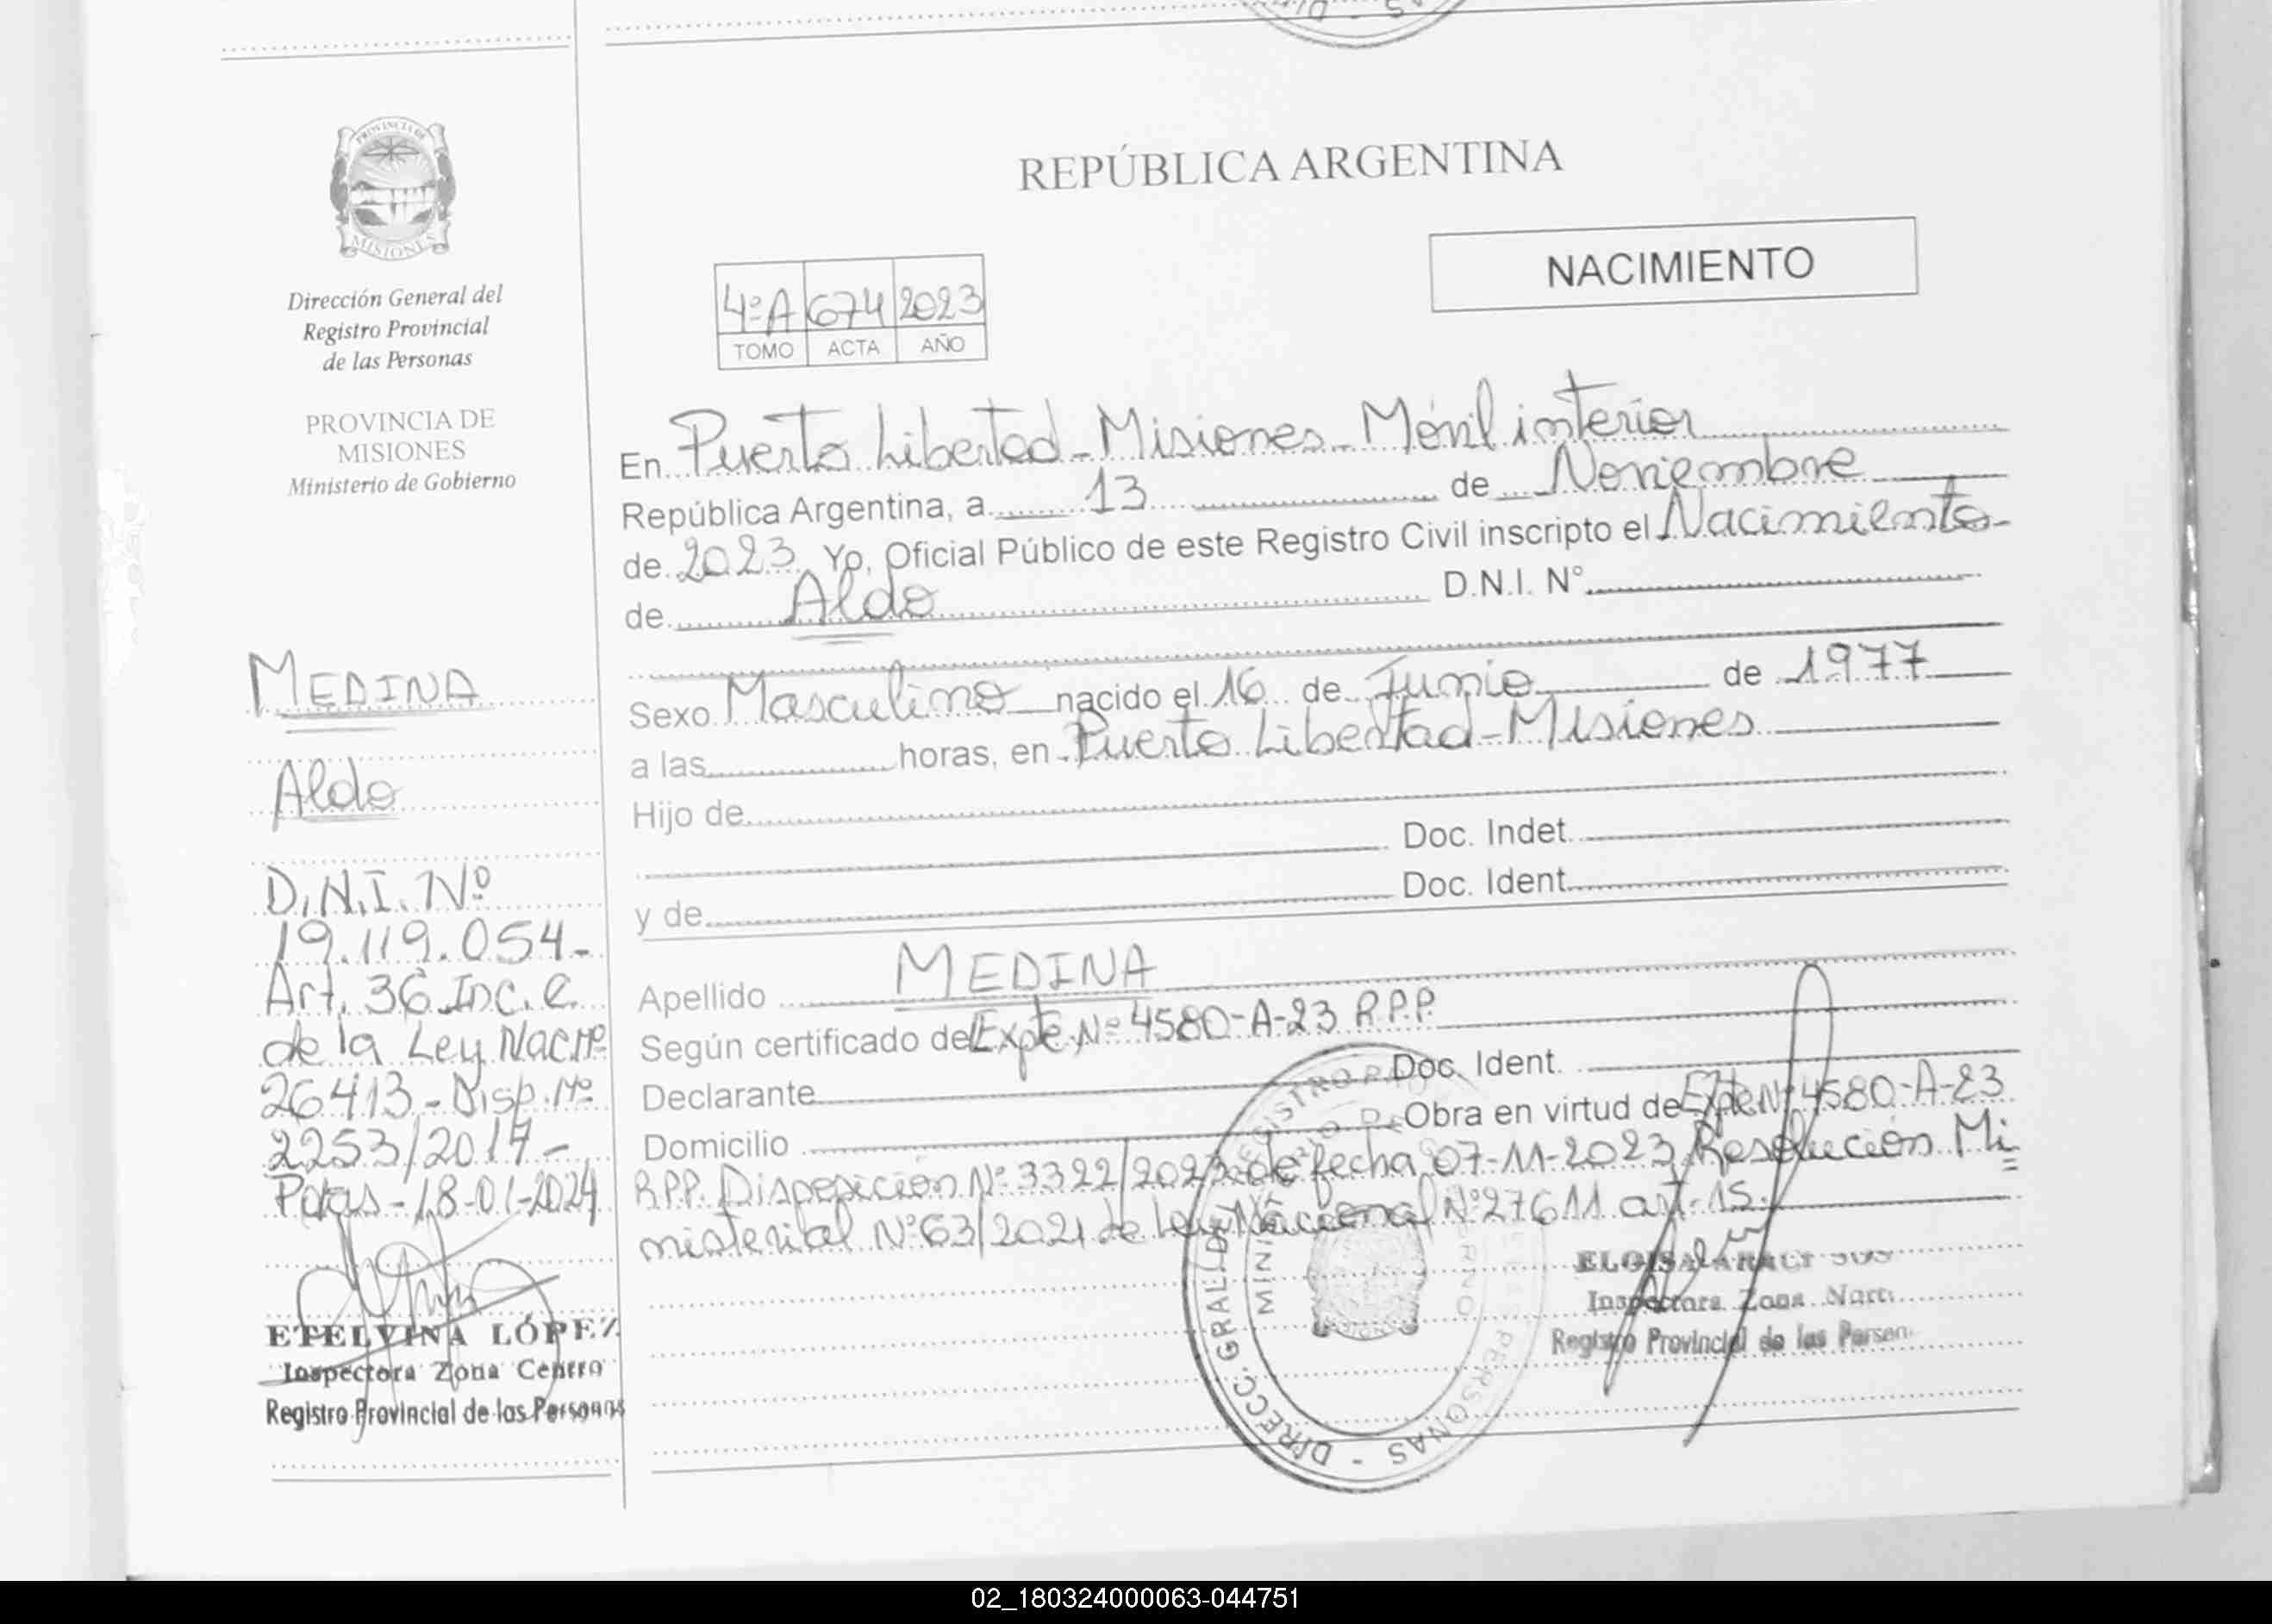 PROVINCIA DE
MISIONES
Dirección General del
Registro Provincial
de las Personas
PROVINCIA DE
MISIONES
Ministerio de Gobierno
MEDINA
Aldo
D.N.I. Nº
19.119.054-
Art. 36 Inc. c
de la Ley Nacnº
26413- Disp. Nº
2253/2017-
Pdas-18-01-2024
ETELVINA LÓPEZ
Inspectora Zona Centro
Registro Provincial de las Personas
REPÚBLICA ARGENTINA
NACIMIENTO
4ºA 674 2023
TOMO ACTA AÑO
En Puerto Libertad-Misiones-Móvil interior
República Argentina, a 13 de Noviembre
de 2023 Yo, Oficial Público de este Registro Civil inscripto el Nacimiento-
de Aldo D.N.I. N°
Sexo Masculino nacido el 16 de Junio de 1977
a las horas, en Puerto Libertad-Misiones
Hijo de
Doc. Indet.
y de Doc. Ident.
Apellido MEDINA
Según certificado del Expte Nº 4580-A-23 R.P.P.
Declarante Doc. Ident.
Domicilio Obra en virtud de Expte Nº 4580-A-23
R.P.P. Disposición Nº 3322/2023 de fecha 07-11-2023 Resolución Mi
nisterial Nº 63/2021 de Ley Nacional Nº 27611 art-15.
Inspectora Zona
Registro Provincial de las
DIRECC. GRAL. DEL REGISTRO PERSONAS
02_180324000063-044751